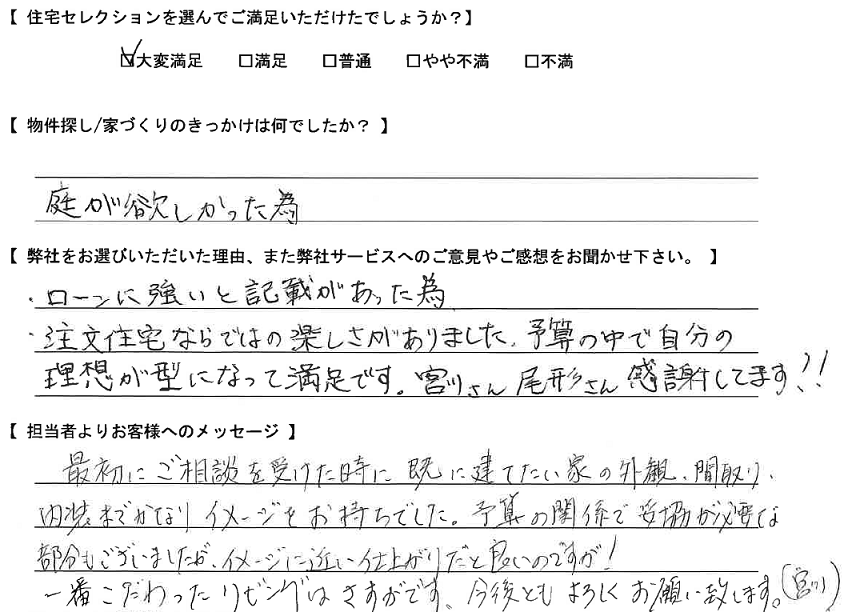 【 住宅セレクションを選んでご満足いただけたでしょうか？】
☑大変満足 □満足 □普通 □やや不満 □不満
【 物件探し/家づくりのきっかけは何でしたか？ 】
庭が欲しかった為
【 弊社をお選びいただいた理由、また弊社サービスへのご意見やご感想をお聞かせ下さい。 】
・ローンに強いと記載があった為
・注文住宅ならではの楽しさがありました。予算の中で自分の
理想が型になって満足です。宮川さん 尾形さん 感謝してます!!
【 担当者よりお客様へのメッセージ 】
最初にご相談を受けた時に既に建てたい家の外観、間取り、
内装までかなりイメージをお持ちでした。予算の関係で妥協が必要な
部分もございましたが、イメージに近い仕上がりだと良いのですが！
一番こだわったリビングはさすがです。今後ともよろしくお願い致します。(宮川)